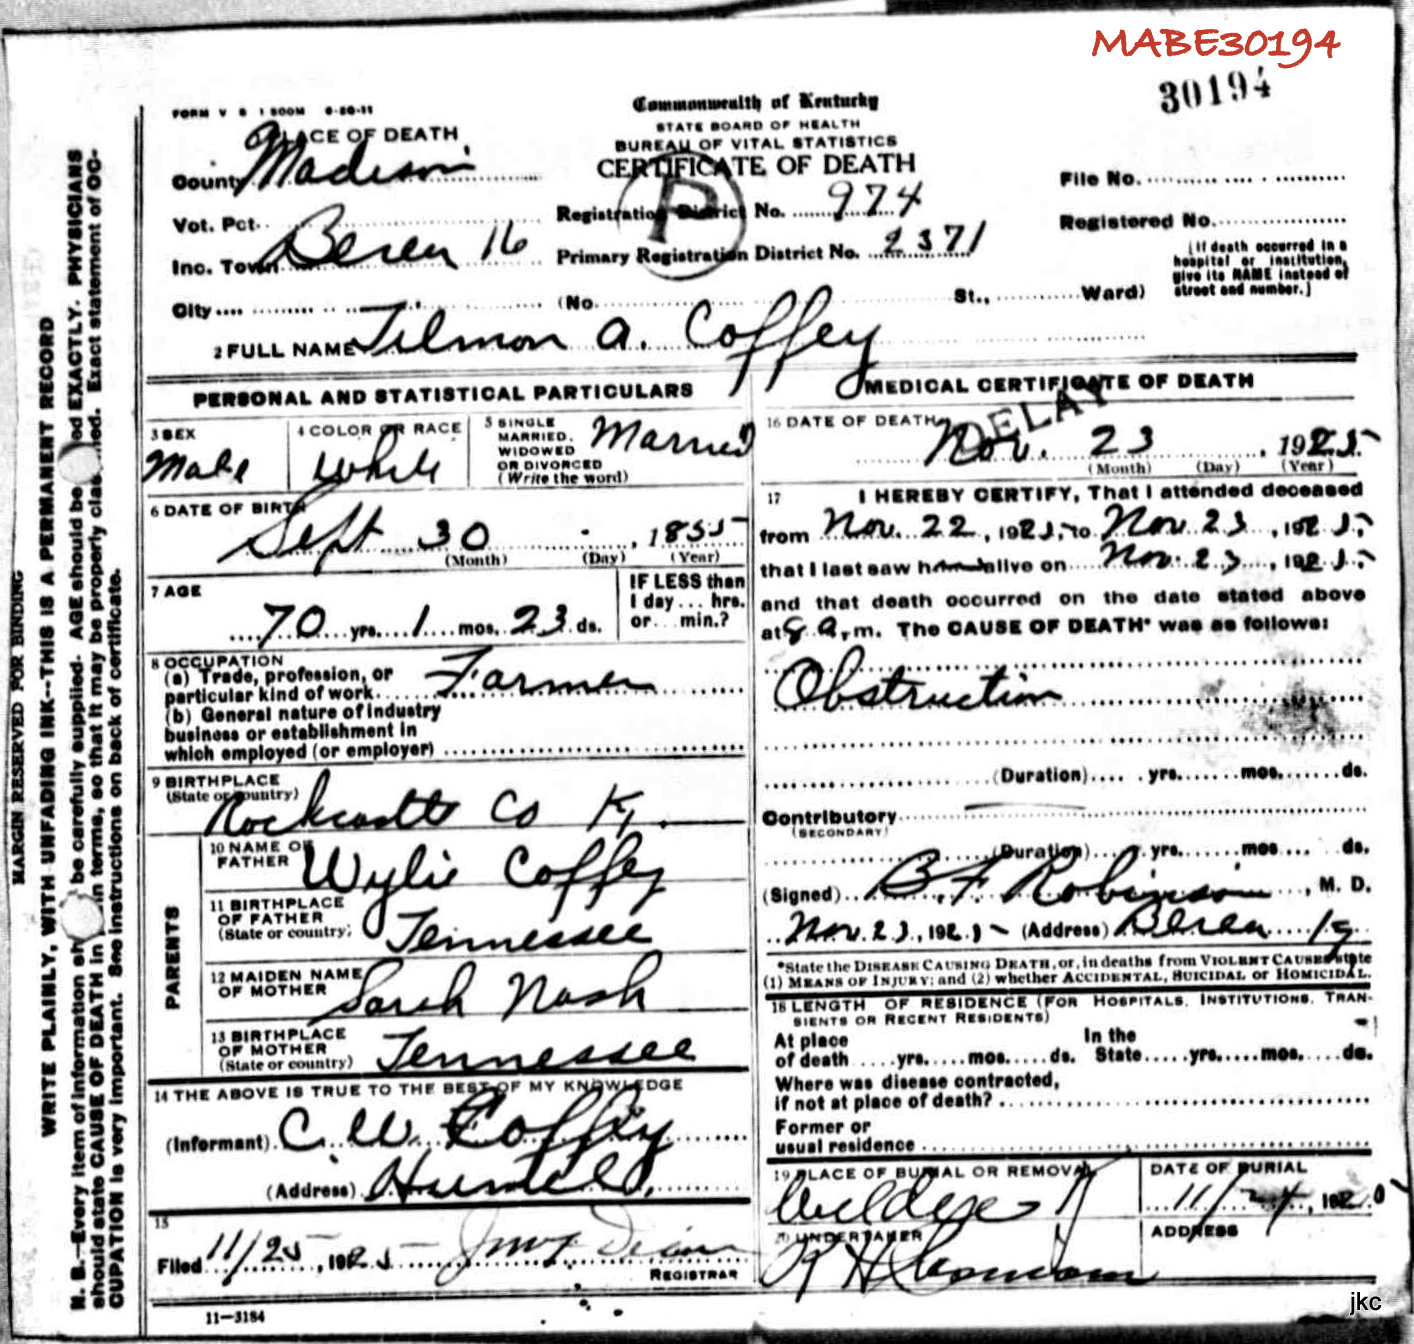 MABE30194
30194
FORM V S 1 500M 6-20-11
Commonwealth of Kentucky
STATE BOARD OF HEALTH
BUREAU OF VITAL STATISTICS
CERTIFICATE OF DEATH
PLACE OF DEATH
County Madison
Vot. Pct.
Inc. Town Berea 16
City
(No. St., Ward)
P
Registration District No. 974
Primary Registration District No. 2371
File No.
Registered No.
(If death occurred in a
hospital or institution,
give its NAME instead of
street and number.)
2 FULL NAME Tilmon A. Coffey
PERSONAL AND STATISTICAL PARTICULARS
3 SEX Male
4 COLOR OR RACE White
5 SINGLE
MARRIED,
WIDOWED
OR DIVORCED
(Write the word)
Married
6 DATE OF BIRTH
Sept 30, 1855
(Month) (Day) (Year)
7 AGE
70 yrs. 1 mos. 23 ds.
IF LESS than
1 day... hrs.
or... min.?
8 OCCUPATION
(a) Trade, profession, or
particular kind of work Farmer
(b) General nature of industry
business or establishment in
which employed (or employer)
9 BIRTHPLACE
(State or country)
Rockcastle Co Ky.
PARENTS
10 NAME OF
FATHER Wylie Coffey
11 BIRTHPLACE
OF FATHER
(State or country) Tennessee
12 MAIDEN NAME
OF MOTHER Sarah Nash
13 BIRTHPLACE
OF MOTHER
(State or country) Tennessee
14 THE ABOVE IS TRUE TO THE BEST OF MY KNOWLEDGE
(Informant) C. W. Coffey
(Address)
15
Filed 11/25, 1925
REGISTRAR
11-3184
MEDICAL CERTIFICATE OF DEATH
DELAY
16 DATE OF DEATH
Nov. 23, 1925
(Month) (Day) (Year)
17 I HEREBY CERTIFY, That I attended deceased
from Nov. 22, 1925, to Nov 23, 1925,
that I last saw h alive on Nov. 23, 1925,
and that death occurred on the date stated above
at 8 a. m. The CAUSE OF DEATH* was as follows:
Obstruction
(Duration) yrs. mos. ds.
Contributory
(SECONDARY)
(Duration) yrs. mos. ds.
(Signed) B F Robinson, M. D.
Nov. 23, 1925 (Address) Berea Ky
*State the DISEASE CAUSING DEATH, or, in deaths from VIOLENT CAUSES state
(1) MEANS OF INJURY; and (2) whether ACCIDENTAL, SUICIDAL or HOMICIDAL.
18 LENGTH OF RESIDENCE (FOR HOSPITALS, INSTITUTIONS, TRAN-
SIENTS OR RECENT RESIDENTS)
At place
of death yrs. mos. ds.
In the
State yrs. mos. ds.
Where was disease contracted,
if not at place of death?
Former or
usual residence
19 PLACE OF BURIAL OR REMOVAL
DATE OF BURIAL
11/24, 192
20 UNDERTAKER
ADDRESS
MARGIN RESERVED FOR BINDING
WRITE PLAINLY, WITH UNFADING INK--THIS IS A PERMANENT RECORD
N. B.--Every item of information sh be carefully supplied. AGE should be ed EXACTLY. PHYSICIANS
should state CAUSE OF DEATH in in terms, so that it may be properly clas ned. Exact statement of OC-
CUPATION is very important. See instructions on back of certificate.
jkc